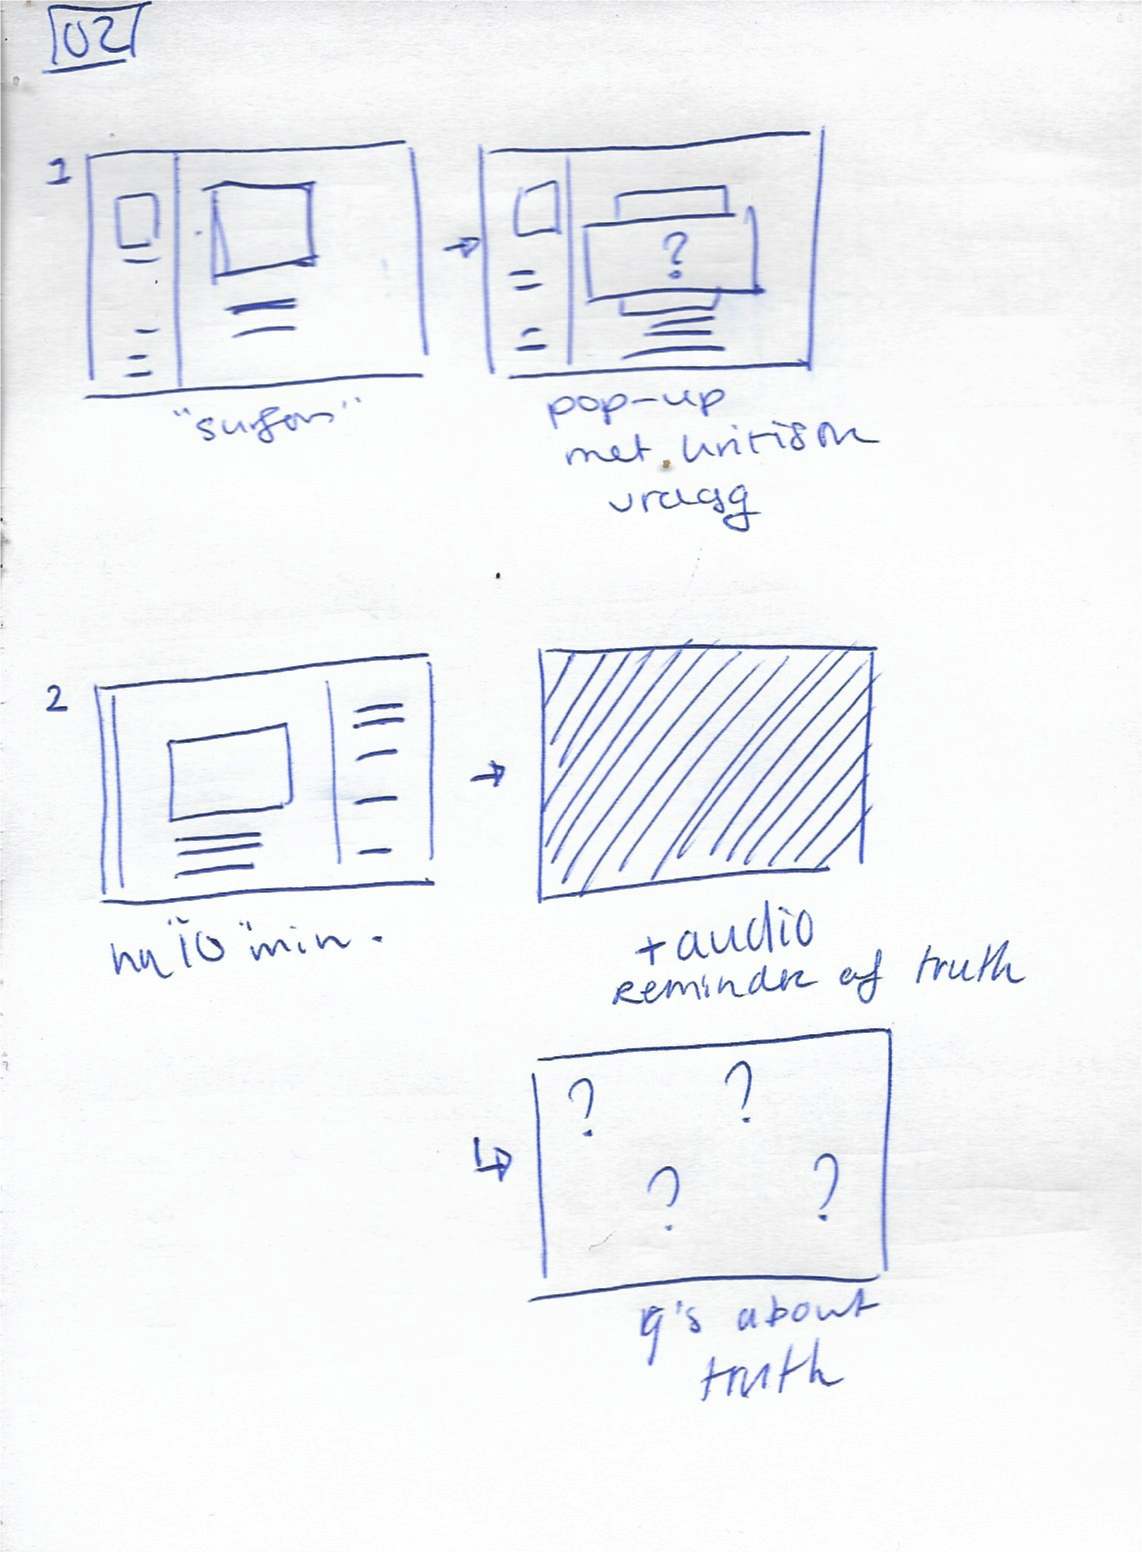 02
1
"surfen"
?
pop-up
met kritisch
vraag
2
na "10" min.
+ audio
reminder of truth
? ?
? ?
q's about
truth